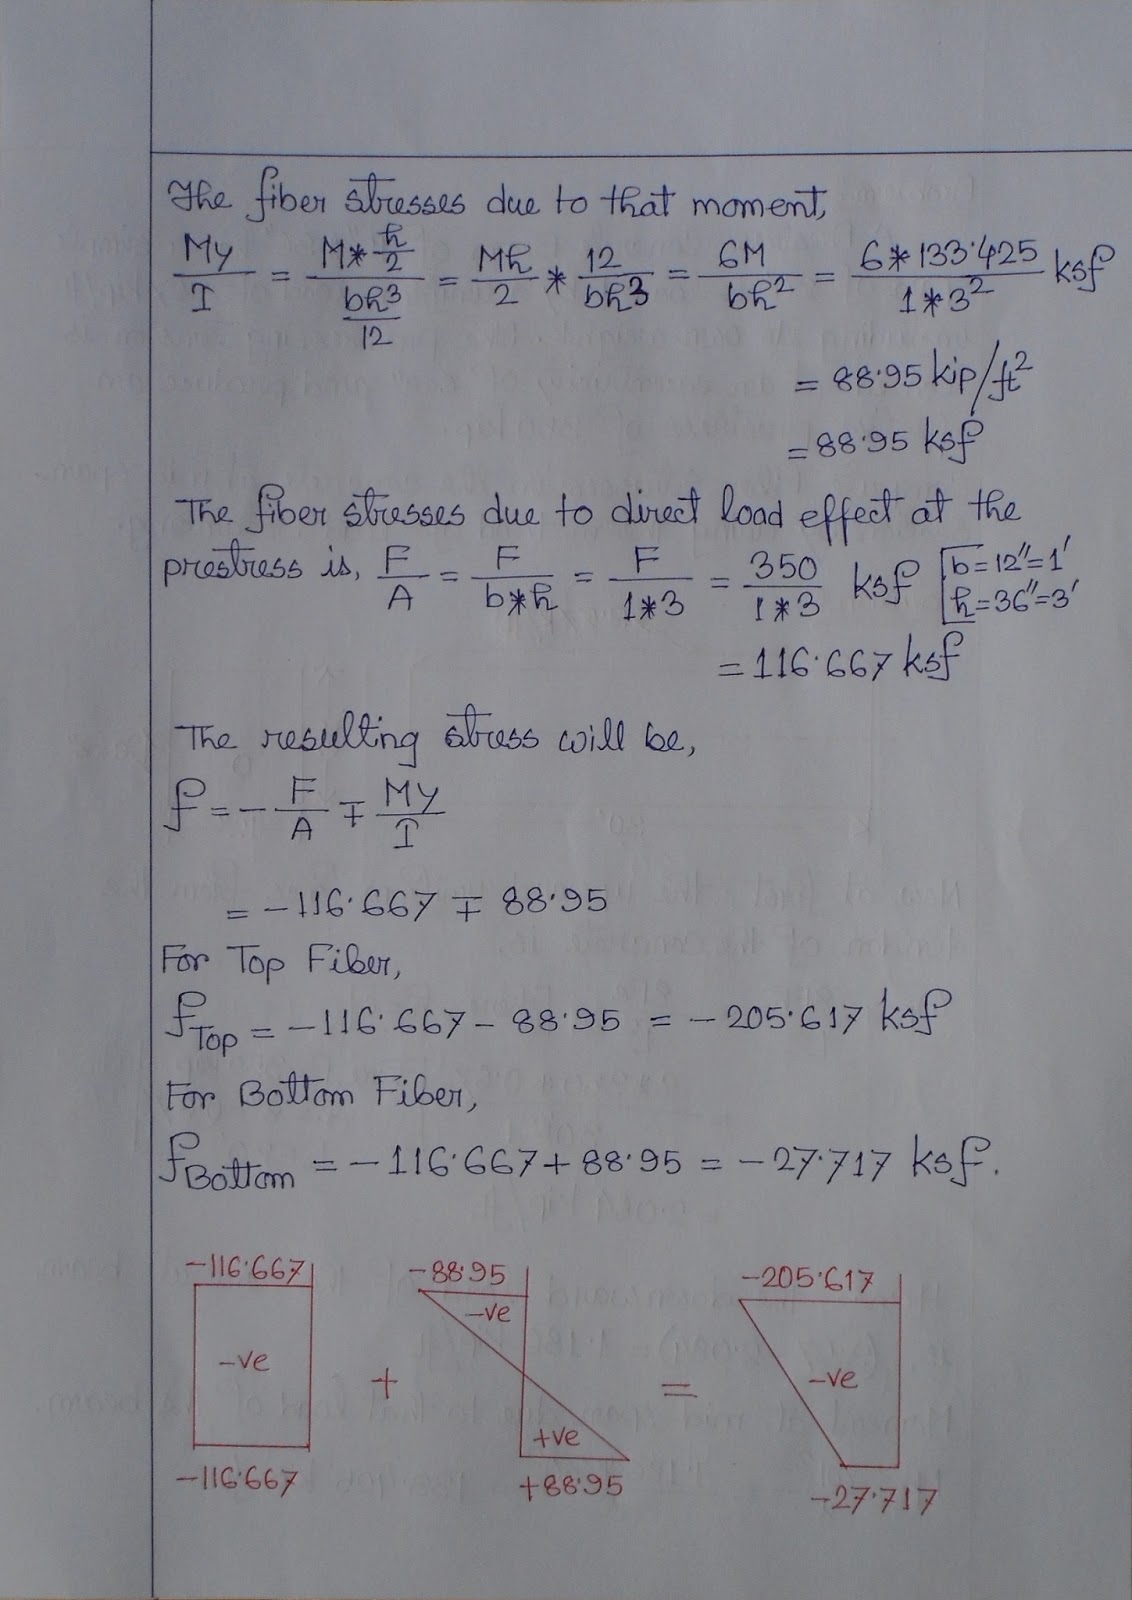 The fiber stresses due to that moment,
My/I = (M*h/2)/(bh³/12) = Mh/2 * 12/bh³ = 6M/bh² = 6*133.425/1*3² ksf
= 88.95 kip/ft²
= 88.95 ksf
The fiber stresses due to direct load effect at the
prestress is, F/A = F/b*h = F/1*3 = 350/1*3 ksf [b=12"=1'
h=36"=3'
= 116.667 ksf
The resulting stress will be,
f = - F/A ∓ My/I
= -116.667 ∓ 88.95
For Top Fiber,
f Top = -116.667 - 88.95 = -205.617 ksf
For Bottom Fiber,
f Bottom = -116.667 + 88.95 = -27.717 ksf.
-116.667 -88.95 -205.617
-ve + -ve = -ve
+ve
-116.667 +88.95 -27.717